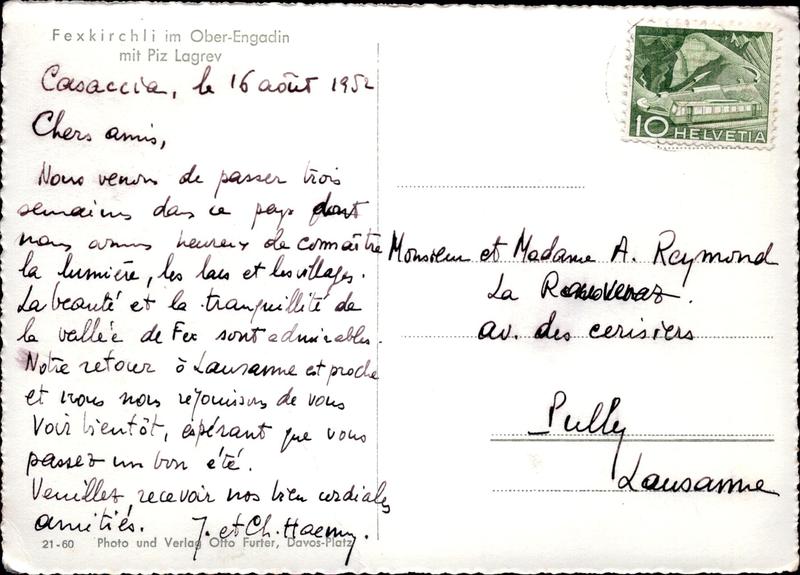 Fexkirchli im Ober-Engadin
mit Piz Lagrev
Casaccia, le 16 août 1952
Chers amis,
Nous venons de passer trois
semaines dans ce pays dont
nous avons heureux de connaître
la lumière, les lacs et les villages.
La beauté et la tranquillité de
la vallée de Fex sont admirables.
Notre retour à Lausanne est proche
et nous nous réjouissons de vous
voir bientôt, espérant que vous
passez un bon été.
Veuillez recevoir nos bien cordiales
amitiés. J. et Ch. Haenny.
21-60 Photo und Verlag Otto Furter, Davos-Platz
10 HELVETIA
Monsieur et Madame A. Reymond
La
av. des cerisiers
Pully
Lausanne